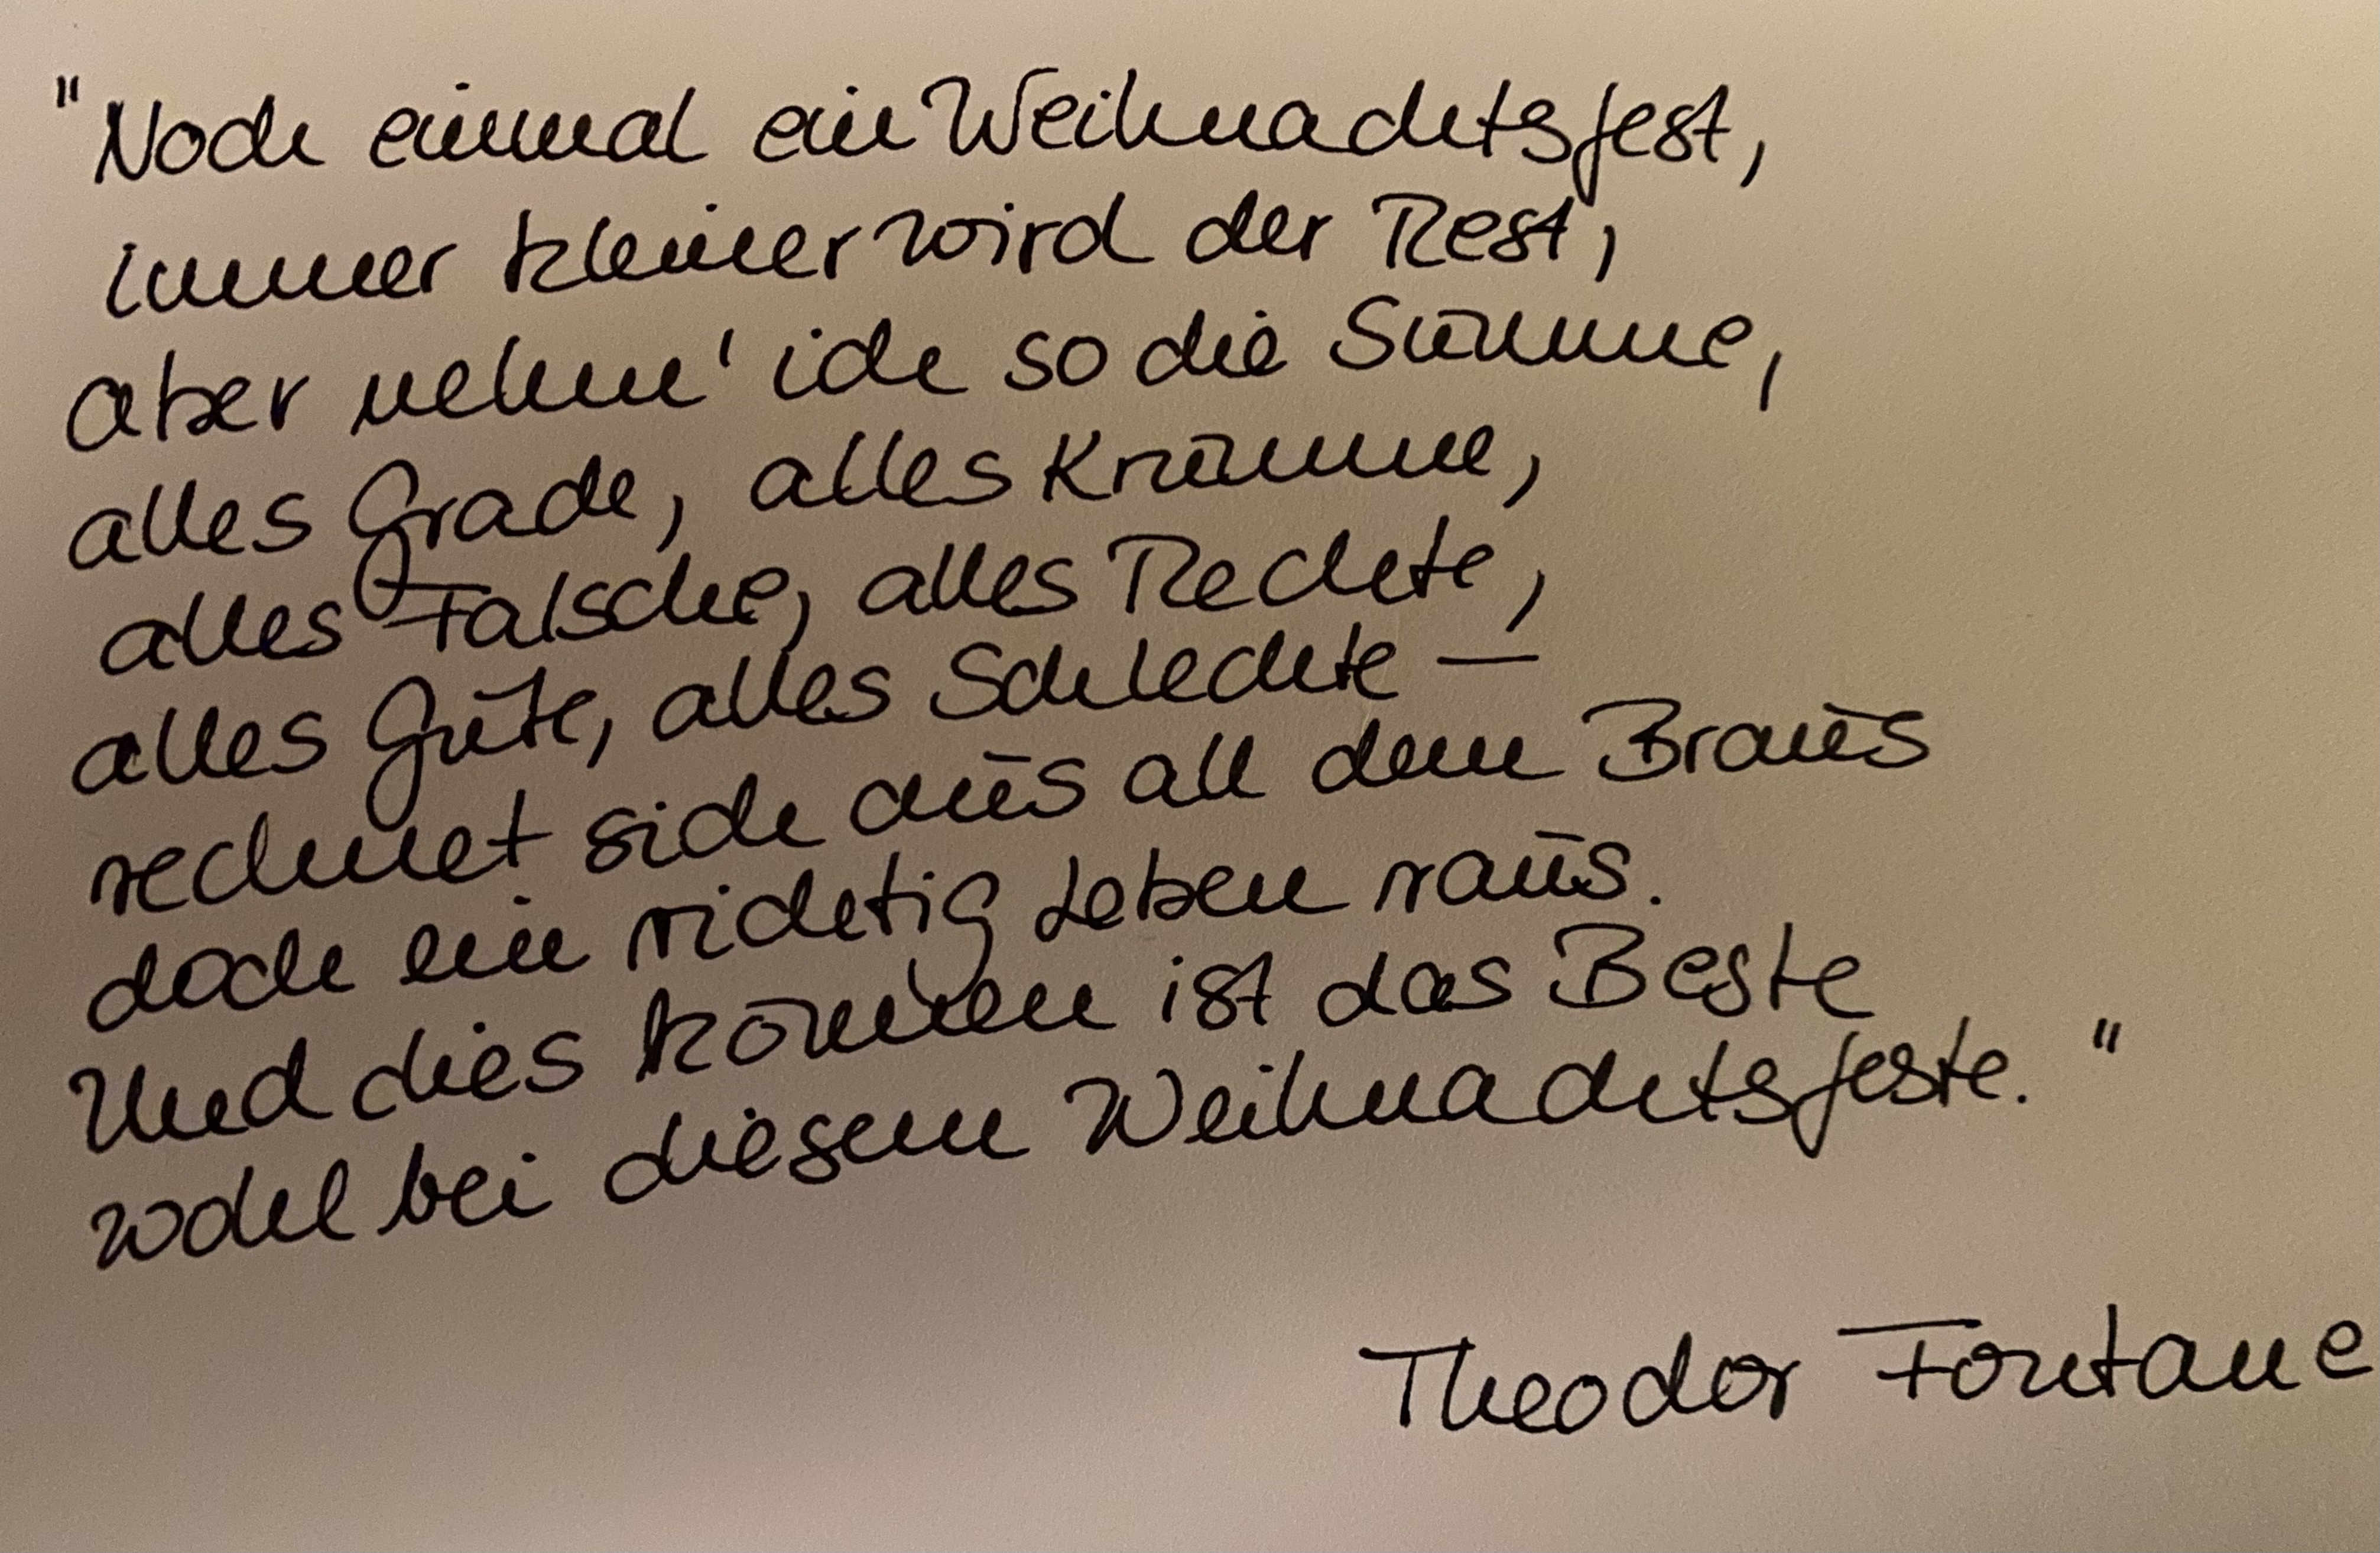 "Noch einmal ein Weihnachtsfest,
immer kleiner wird der Rest,
aber nehm' ich so die Summe,
alles Grade, alles Krumme,
alles Falsche, alles Rechte,
alles Gute, alles Schlechte —
rechnet sich aus all dem Braus
doch ein richtig Leben raus.
Und dies können ist das Beste
wohl bei diesem Weihnachtsfeste."
Theodor Fontane